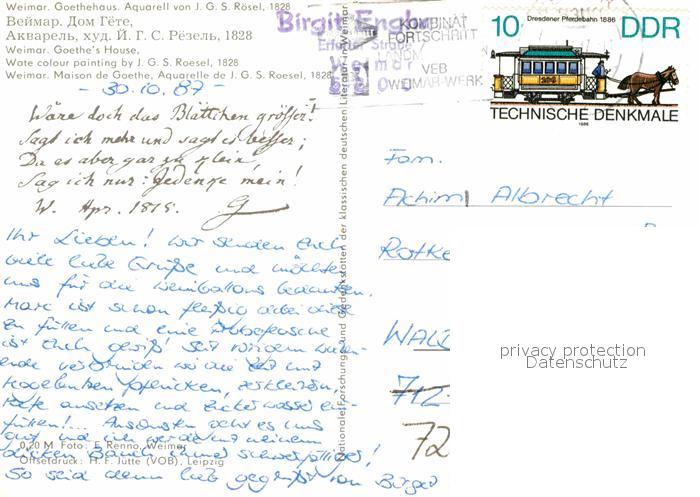 Weimar. Goethehaus. Aquarell von J. G. S. Rösel, 1828
Веймар. Дом Гёте,
Акварель, худ. Й. Г. С. Рёзель, 1828
Weimar. Goethe's House,
Wate colour painting by J. G. S. Roesel, 1828
Weimar. Maison de Goethe, Aquarelle de J. G. S. Roesel, 1828
- 30.10.87 -
Wäre doch das Blättchen größer!
Sagt ich mehr und sagt es besser;
Da es aber gar zu klein,
Sag ich nur: Gedenke mein!
W. Apr. 1815. G
Ihr Lieben! Wir senden Euch
viele liebe Grüße und möchten
uns für die Weinballons bedanken.
Marc ist schon fleißig dabei
zu füllen und eine Probeflasche
ist Euch gewiß! Seit
wir die Zeit mit
Hagebutten pflücken, zerkleinern,
Hefe ansetzen und Zuckerwasser ein-
füllen!... Ansonsten geht es uns
gut und ich werde mit meinem
dicken Bauch immer schwerfälliger!
So seid denn lieb gegrüßt von
0,20 M Foto: E. Renno, Weimar
Offsetdruck: H. F. Jütte (VOB), Leipzig
Nationale Forschungs- und Gedenkstätten der klassischen deutschen Literatur in Weimar
Birgit
Erfurter Straße
Weimar
KOMBINAT
FORTSCHRITT
VEB
WEIMAR-WERK
Dresdener Pferdebahn 1886
10 DDR
TECHNISCHE DENKMALE
1986
Fam.
Achim Albrecht
Rotke
WALD
712
72
privacy protection
Datenschutz